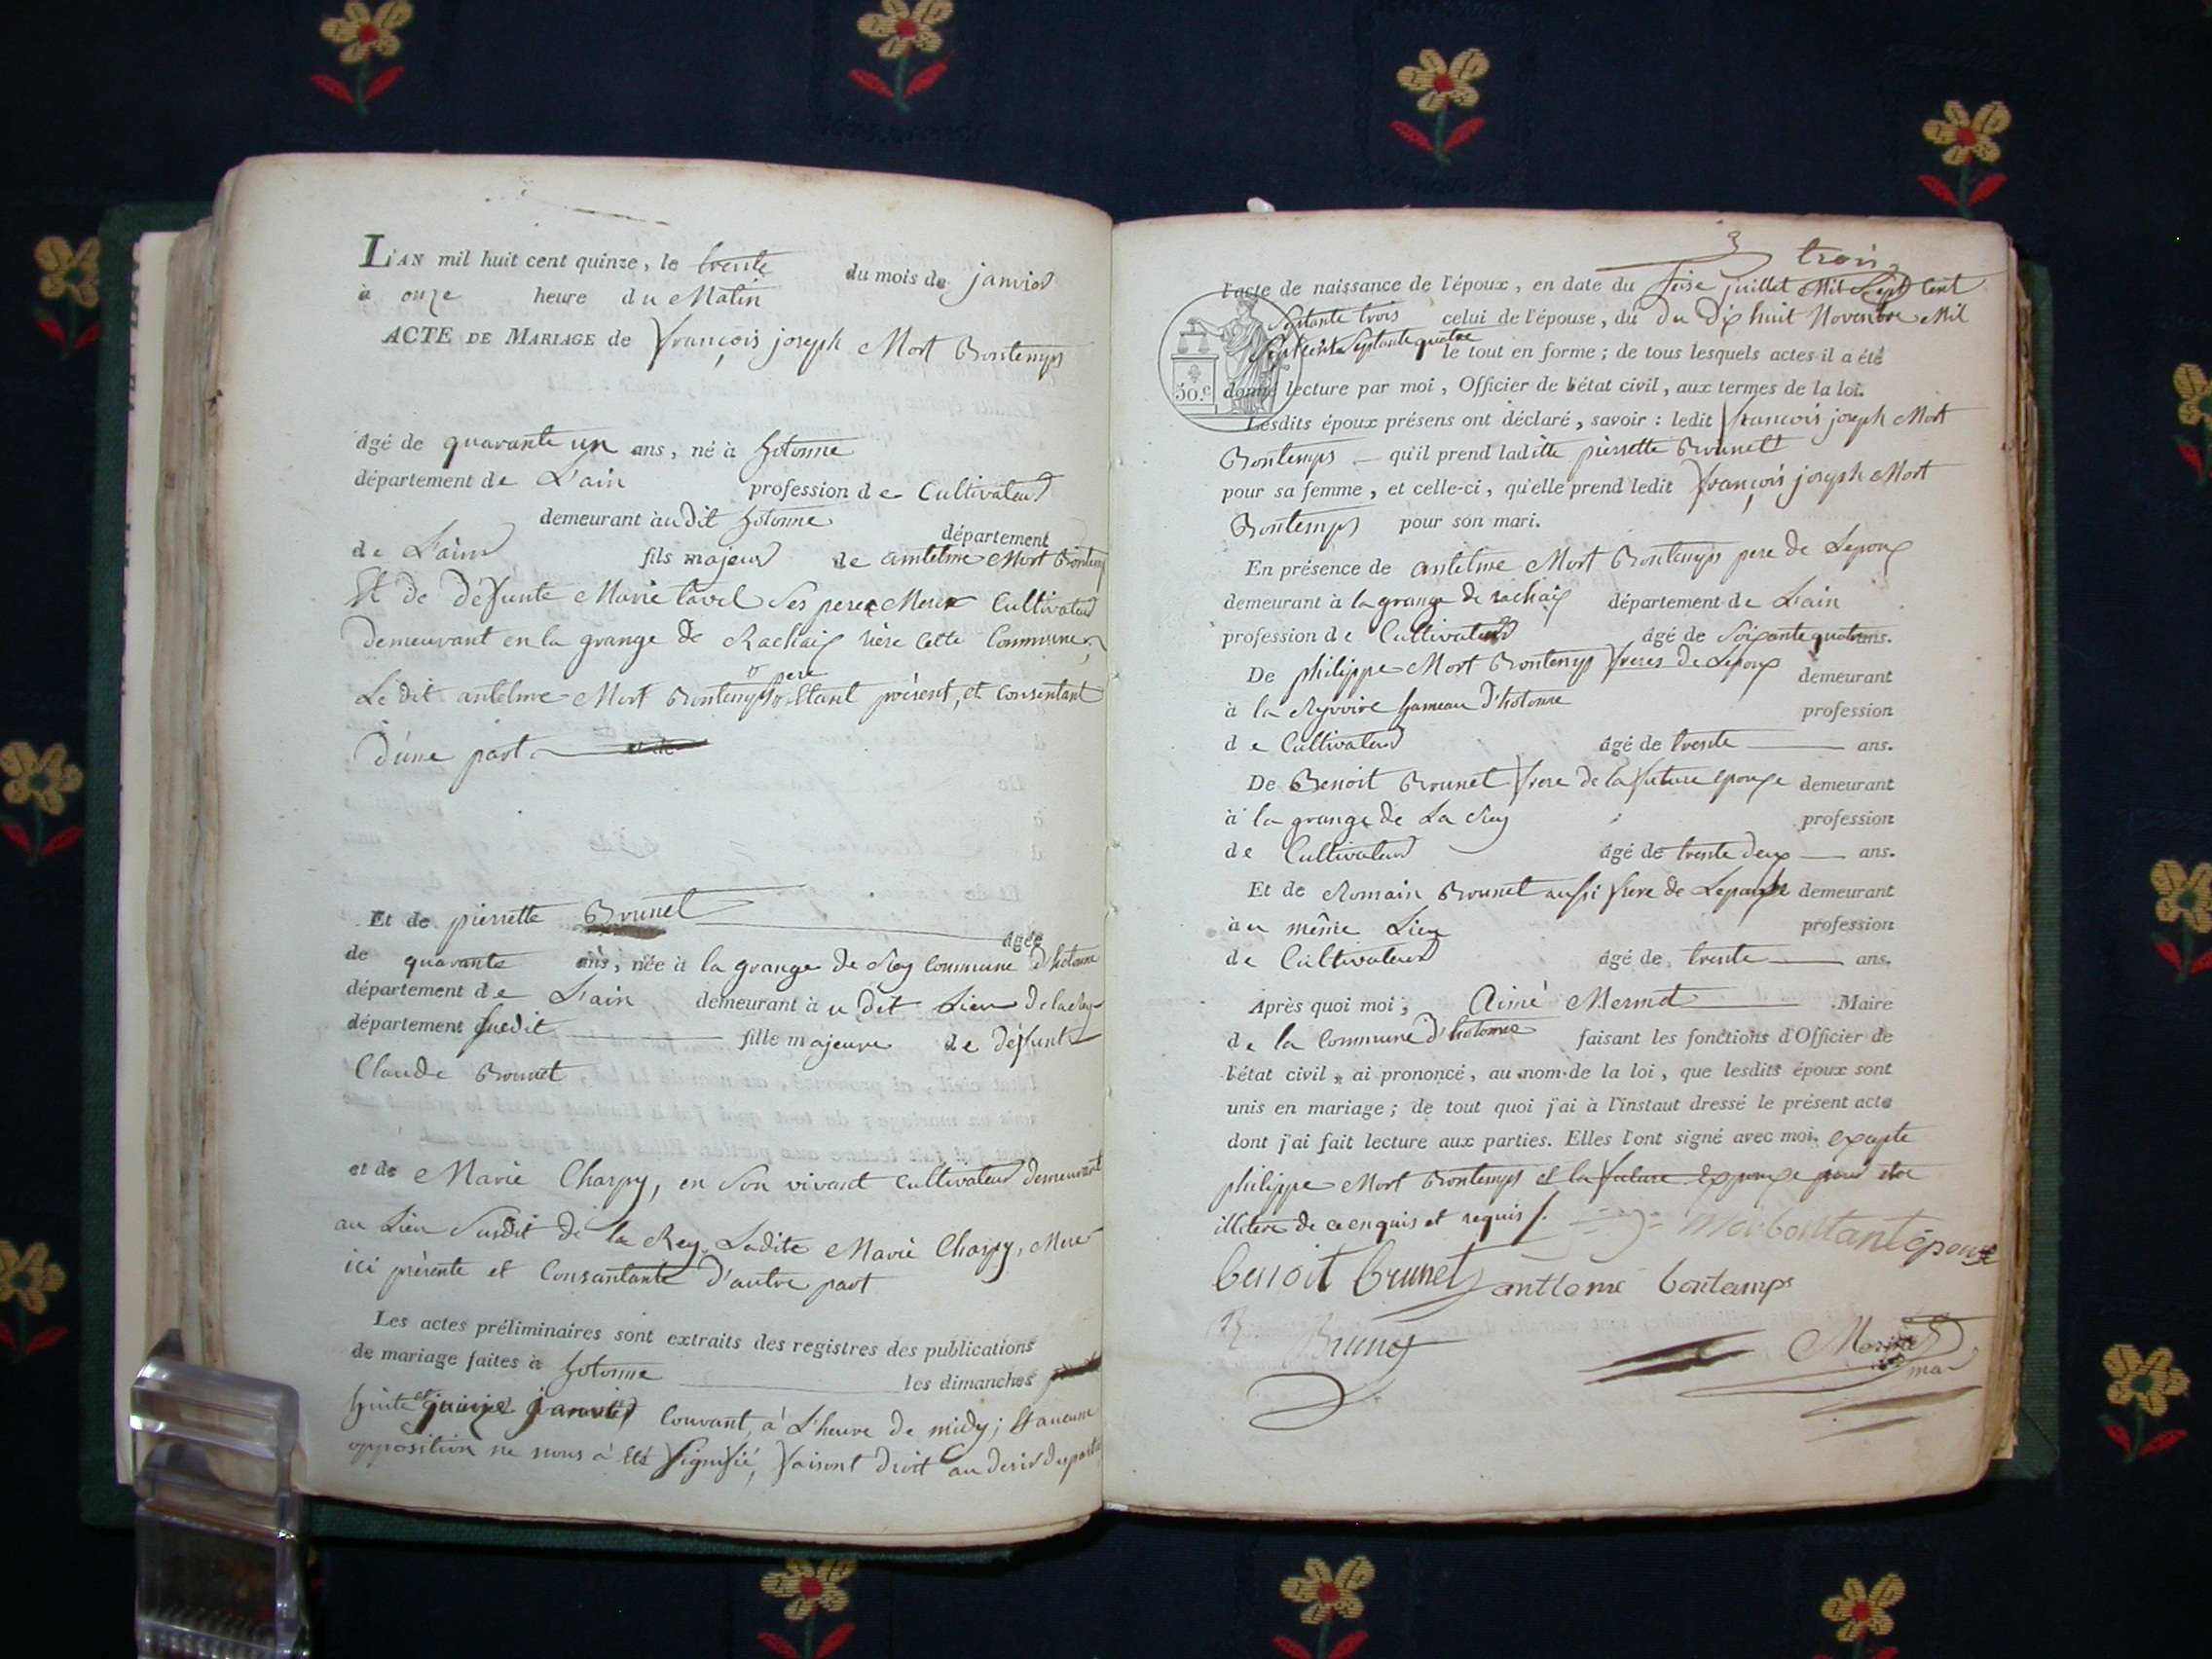 L'AN mil huit cent quinze, le trente du mois de janvier
à onze heure du Matin
ACTE DE MARIAGE de françois joseph Mort Bontemps
âgé de quarante un ans, né à hotonne
département de L'ain profession de Cultivateur
demeurant àu dit hotonne département
de L'ain fils majeur de antelme Mort Bontemps
Et de défunte Marie tavel Ses pere Mere Cultivateur
demeurant en la grange de Rachaix rière Cette Commune
Le dit antelme Mort Bontemps pere Etant présent, et Consentant
d'une part
Et de pierrette Brunet âgée
de quarante ans, née à la grange de Rey Commune d'hotonne
département de L'ain demeurant àu dit Lieu de la Rey
département Susdit fille majeure de défunt
Claude Brunet
et de Marie Charpy, en Son vivant Cultivateur demeurant
au Lieu Susdit de la Rey Ladite Marie Charpy, Mere
ici présente et Consantante d'autre part
Les actes préliminaires sont extraits des registres des publications
de mariage faites à hotonne les dimanches
huit et quinze janvier Courant, à L'heure de midy; Et aucune
opposition ne nous à Eté Signifié, faisant droit au desir des parties
3 trois
l'acte de naissance de l'époux, en date du Seise juillet Mil Sept Cent
Septante trois celui de l'épouse, du du Dix huit Novembre Mil
Sept Cent Septante quatre le tout en forme; de tous lesquels actes il a été
50.c donné lecture par moi, Officier de l'état civil, aux termes de la loi.
Lesdits époux présens ont déclaré, savoir: ledit françois joseph Mort
Bontemps qu'il prend laditte pierrette Brunet
pour sa femme, et celle-ci, qu'elle prend ledit françois joseph Mort
Bontemps pour son mari.
En présence de antelme Mort Bontemps pere de Lepoux
demeurant à la grange de rachaix département de L'ain
profession de Cultivateur âgé de Soixante quatre ans.
De philippe Mort Bontemps freres de Lepoux demeurant
à la Ryvoire hameau d'hotonne profession
de Cultivateur âgé de trente ans.
De Benoit Brunet frere de la future epouse demeurant
à la grange de La Rey profession
de Cultivateur âgé de trente deux ans.
Et de Romain Brunet aussi frere de Lepouse demeurant
àu même Lieu profession
de Cultivateur âgé de trente ans.
Après quoi moi, Aimé Mermet Maire
de la Commune d'hotonne faisant les fonctions d'Officier de
l'état civil, ai prononcé, au nom de la loi, que lesdits époux sont
unis en mariage; de tout quoi j'ai à l'instaut dressé le présent acte
dont j'ai fait lecture aux parties. Elles l'ont signé avec moi. excepte
philippe Mort Bontemps et la future epouse pour etre
illitere de ce enquis et requis
mor bontant épouse
benoit brunet antlome bontamps
R Brunet Mermet
mar